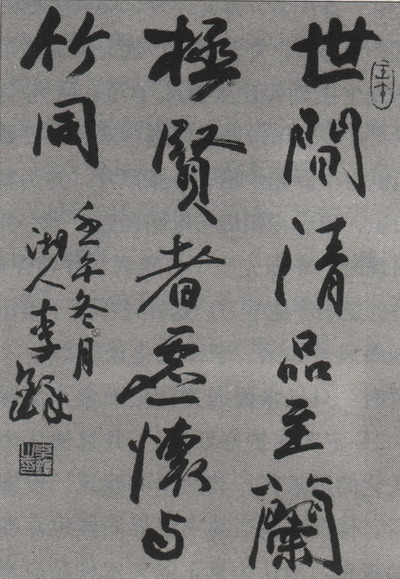 世間清品至蘭
極賢者虛懷与
竹同
壬午冬月
湖人李鐸